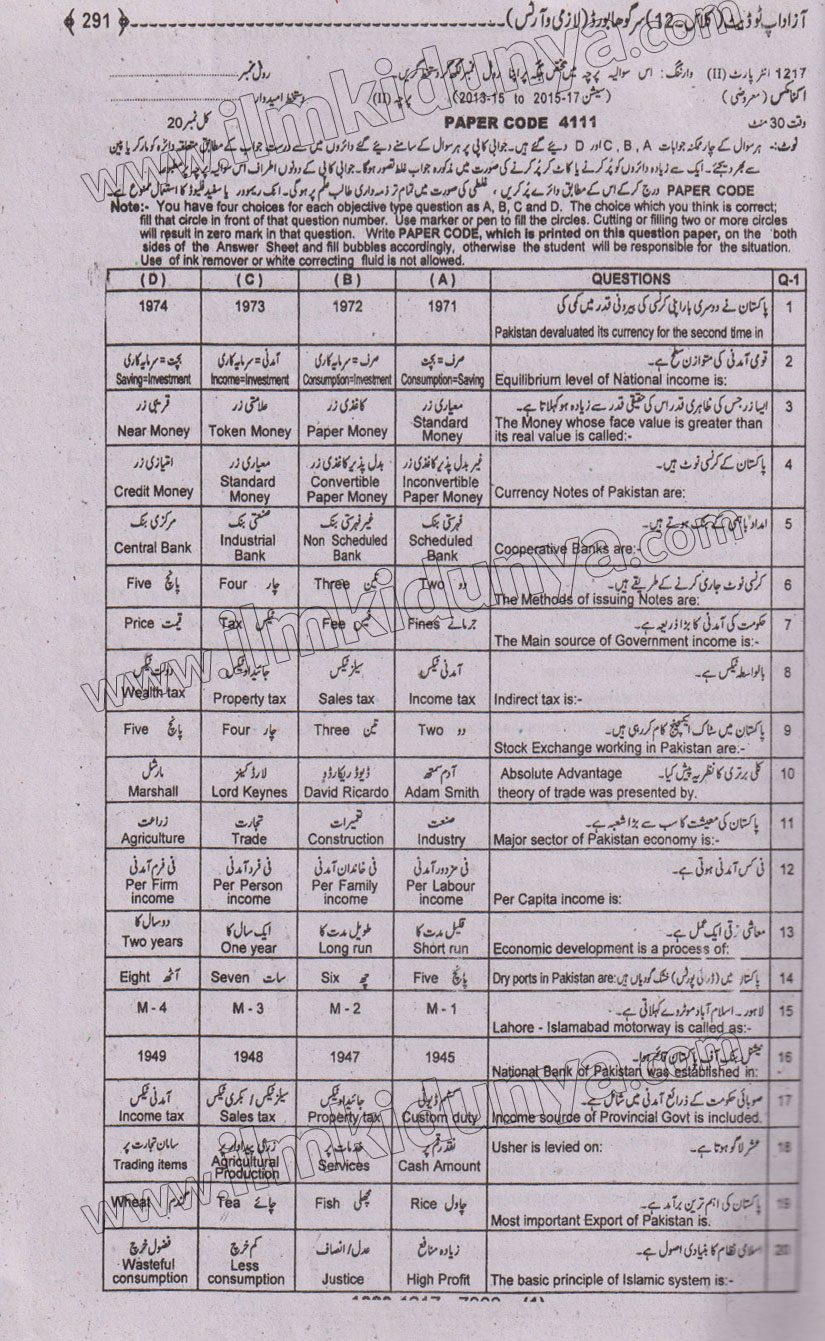 آزاد اپ ٹو ڈیٹ (کلاس-12) سرگودھا بورڈ (لازمی و آرٹس) 291
1217 انٹر پارٹ (II) وارننگ: اس سوالیہ پرچہ میں مختص جگہ پر اپنا رول نمبر لکھ کر دستخط کریں۔ رول نمبر
اکنامکس (معروضی) (سیشن 2015-17 to 2013-15) پرچہ (II) دستخط امیدوار
وقت 30 منٹ PAPER CODE 4111 کل نمبر 20
نوٹ:- ہر سوال کے چار ممکنہ جوابات C, B, A اور D دیئے گئے ہیں۔ جوابی کاپی پر ہر سوال کے سامنے دیئے گئے دائروں میں سے درست جواب کے مطابق متعلقہ دائرہ کو مارکر یا پین
سے بھر دیجئے۔ ایک سے زیادہ دائروں کو پُر کرنے یا کاٹ کر پُر کرنے کی صورت میں مذکورہ جواب غلط تصور ہوگا۔ جوابی کاپی کے دونوں اطراف اس سوالیہ پرچہ پر مطبوعہ
PAPER CODE درج کر کے اس کے مطابق دائرے پُر کریں، غلطی کی صورت میں تمام تر ذمہ داری طالب علم پر ہوگی۔ انک ریموور یا سفید فلیوڈ کا استعمال ممنوع ہے۔
Note:- You have four choices for each objective type question as A, B, C and D. The choice which you think is correct;
fill that circle in front of that question number. Use marker or pen to fill the circles. Cutting or filling two or more circles
will result in zero mark in that question. Write PAPER CODE, which is printed on this question paper, on the both
sides of the Answer Sheet and fill bubbles accordingly, otherwise the student will be responsible for the situation.
Use of ink remover or white correcting fluid is not allowed.
( D ) ( C ) ( B ) ( A ) QUESTIONS Q-1
1974 1973 1972 1971 پاکستان نے دوسری بار اپنی کرنسی کی بیرونی قدر میں کمی کی 1
Pakistan devaluated its currency for the second time in
بچت = سرمایہ کاری آمدنی = سرمایہ کاری صرف = سرمایہ کاری صرف = بچت قومی آمدنی کی متوازن سطح ہے۔ 2
Saving=Investment Income=Investment Consumption=Investment Consumption=Saving Equilibrium level of National income is:
قریبی زر علامتی زر کاغذی زر معیاری زر ایسا زر جس کی ظاہری قدر اس کی حقیقی قدر سے زیادہ ہو کہلاتا ہے۔ 3
Near Money Token Money Paper Money Standard Money The Money whose face value is greater than
its real value is called:-
اعتباری زر معیاری زر بدل پذیر کاغذی زر غیر بدل پذیر کاغذی زر پاکستان کے کرنسی نوٹ ہیں۔ 4
Credit Money Standard Money Convertible Paper Money Inconvertible Paper Money Currency Notes of Pakistan are:
مرکزی بنک صنعتی بنک غیر فہرستی بنک فہرستی بنک امداد باہمی کے بنک ہوتے ہیں۔ 5
Central Bank Industrial Bank Non Scheduled Bank Scheduled Bank Cooperative Banks are:-
Five پانچ Four چار Three تین Two دو کرنسی نوٹ جاری کرنے کے طریقے ہیں۔ 6
The Methods of issuing Notes are:
Price قیمت Tax ٹیکس Fee فیس Fines جرمانے حکومت کی آمدنی کا بڑا ذریعہ ہے۔ 7
The Main source of Government income is:-
دولت ٹیکس جائیداد ٹیکس سیلز ٹیکس آمدنی ٹیکس بالواسطہ ٹیکس ہے۔ 8
Wealth tax Property tax Sales tax Income tax Indirect tax is:-
Five پانچ Four چار Three تین Two دو پاکستان میں سٹاک ایکسچینج کام کر رہی ہیں۔ 9
Stock Exchange working in Pakistan are:-
مارشل لارڈ کینز ڈیوڈ ریکارڈو آدم سمتھ Absolute Advantage کلی برتری کا نظریہ پیش کیا۔ 10
Marshall Lord Keynes David Ricardo Adam Smith theory of trade was presented by.
زراعت تجارت تعمیرات صنعت پاکستان کی معیشت کا سب سے بڑا شعبہ ہے۔ 11
Agriculture Trade Construction Industry Major sector of Pakistan economy is:-
فی فرم آمدنی فی فرد آمدنی فی خاندان آمدنی فی مزدور آمدنی فی کس آمدنی ہوتی ہے۔ 12
Per Firm income Per Person income Per Family income Per Labour income Per Capita income is:
دو سال کا ایک سال کا طویل مدت کا قلیل مدت کا معاشی ترقی ایک عمل ہے۔ 13
Two years One year Long run Short run Economic development is a process of:
Eight آٹھ Seven سات Six چھ Five پانچ Dry ports in Pakistan are: پاکستان میں (ڈرائی پورٹس) خشک گودیاں ہیں 14
M - 4 M - 3 M - 2 M - 1 لاہور۔ اسلام آباد موٹروے کہلاتی ہے۔ 15
Lahore - Islamabad motorway is called as:-
1949 1948 1947 1945 نیشنل بنک آف پاکستان قائم ہوا۔ 16
National Bank of Pakistan was established in:
آمدنی ٹیکس سیلز ٹیکس / بکری ٹیکس جائیداد ٹیکس کسٹم ڈیوٹی صوبائی حکومت کے ذرائع آمدنی میں شامل ہے۔ 17
Income tax Sales tax Property tax Custom duty Income source of Provincial Govt is included.
سامان تجارت پر زرعی پیداوار پر خدمات پر نقد رقم پر Usher is levied on: عشر لاگو ہوتا ہے۔ 18
Trading items Agricultural Production Services Cash Amount
Wheat گندم Tea چائے Fish مچھلی Rice چاول پاکستان کی اہم ترین برآمد ہے۔ 19
Most important Export of Pakistan is.
فضول خرچ کم خرچ عدل / انصاف زیادہ منافع اسلامی نظام کا بنیادی اصول ہے۔ 20
Wasteful consumption Less consumption Justice High Profit The basic principle of Islamic system is:-
www.ilmkidunya.com
www.ilmkidunya.com
www.ilmkidunya.com